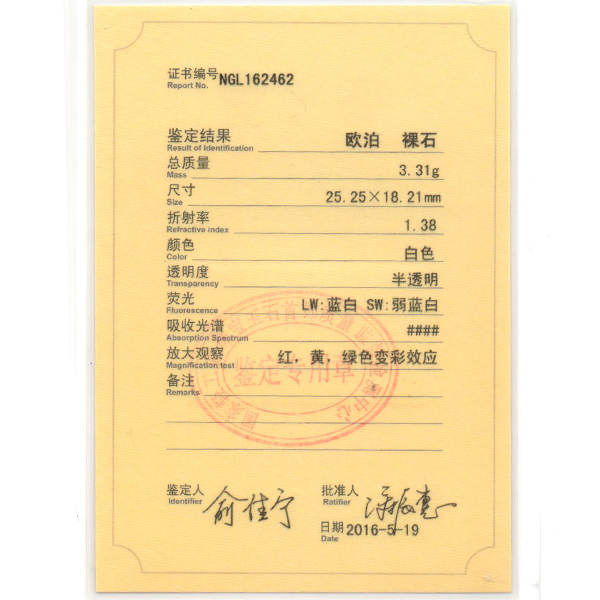 证书编号 NGL162462
Report No.
鉴定结果 欧泊 裸石
Result of Identification
总质量 3.31g
Mass
尺寸 25.25×18.21mm
Size
折射率 1.38
Refractive index
颜色 白色
Color
透明度 半透明
Transparency
荧光 LW:蓝白 SW:弱蓝白
Fluorescence
吸收光谱 ####
Absorption Spectrum
放大观察 红，黄，绿色变彩效应
Magnification test
备注
Remarks
鉴定专用章
鉴定人 俞佳宁 批准人
Identifier Ratifier
日期 2016-5-19
Date